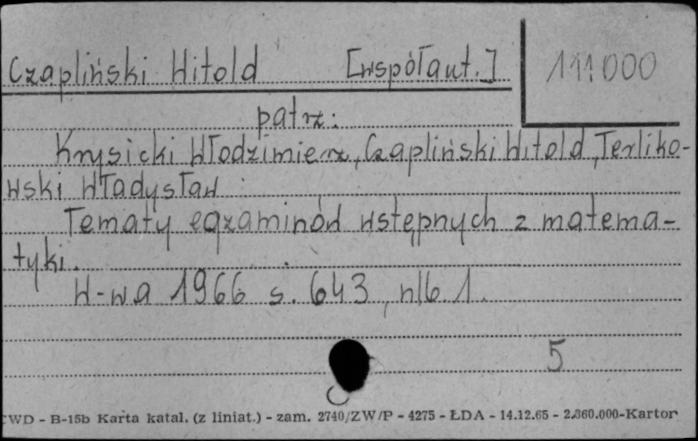 Czapliński Witold [współaut.] 111000
patrz:
Krysicki Włodzimierz, Czapliński Witold, Terliko-
wski Władysław
Tematy egzaminów wstępnych z matema-
tyki.
W-wa 1966 s. 643, nlb. 1.
5
CWD - B-15b Karta katal. (z liniat.) - zam. 2740/ZW/P - 4275 - ŁDA - 14.12.65 - 2.860.000-Karton